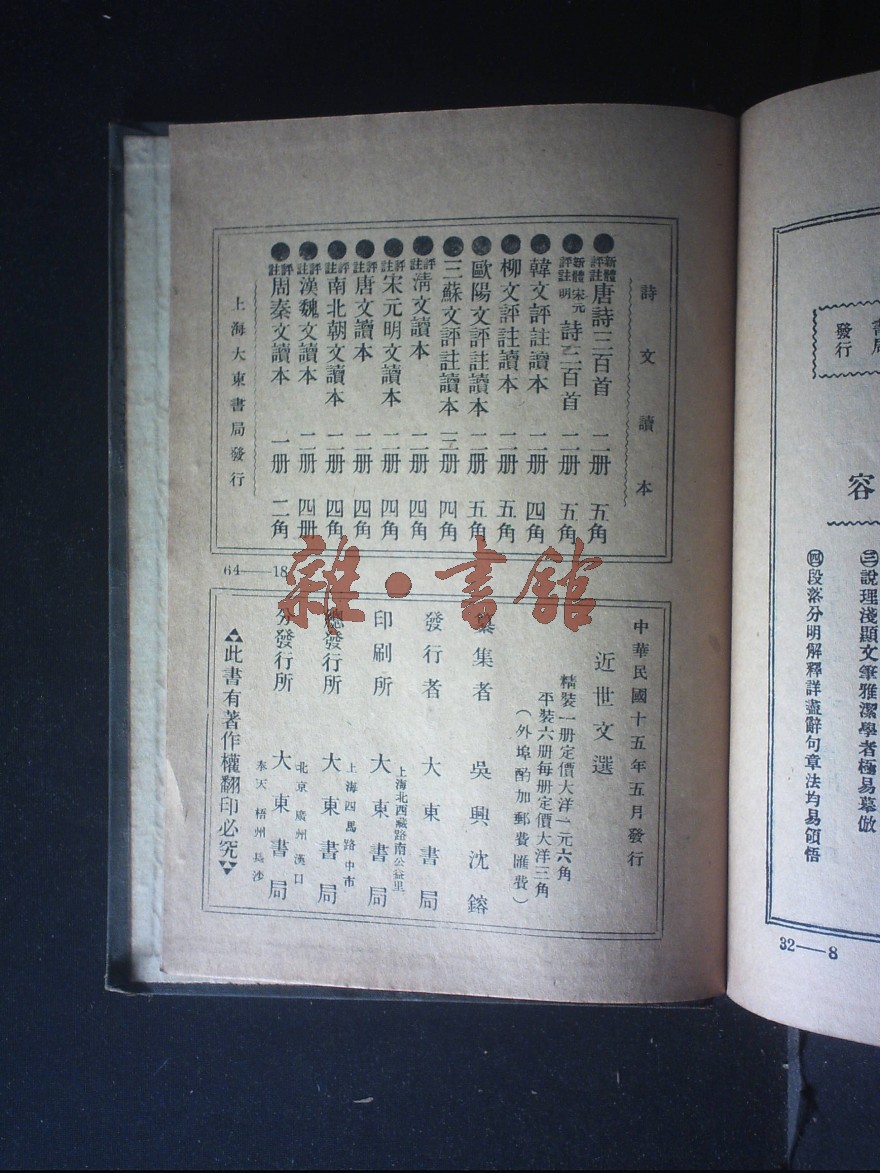 詩文讀本
新體評註唐詩三百首 二册 五角
新體評註宋元明詩三百首 二册 五角
韓文評註讀本 二册 四角
柳文評註讀本 二册 五角
歐陽文評註讀本 二册 五角
三蘇文評註讀本 三册 四角
評註清文讀本 二册 四角
評註宋元明文讀本 二册 四角
評註唐文讀本 二册 四角
評註南北朝文讀本 二册 四角
評註漢魏文讀本 二册 四册
評註周秦文讀本 一册 二角
上海大東書局發行
64——18
中華民國十五年五月發行
近世文選
精裝一册定價大洋一元六角
平裝六册每册定價大洋三角
(外埠酌加郵費匯費)
纂集者 吳興沈鎔
發行者 大東書局
印刷所 上海北西藏路南公益里 大東書局
總發行所 上海四馬路中市 大東書局
分發行所 北京 廣州 漢口 奉天 梧州 長沙 大東書局
此書有著作權翻印必究
雜·書館
書局
發行
容
㊂說理淺顯文筆雅潔學者極易摹倣
㊃段落分明解釋詳盡辭句章法均易領悟
32——8